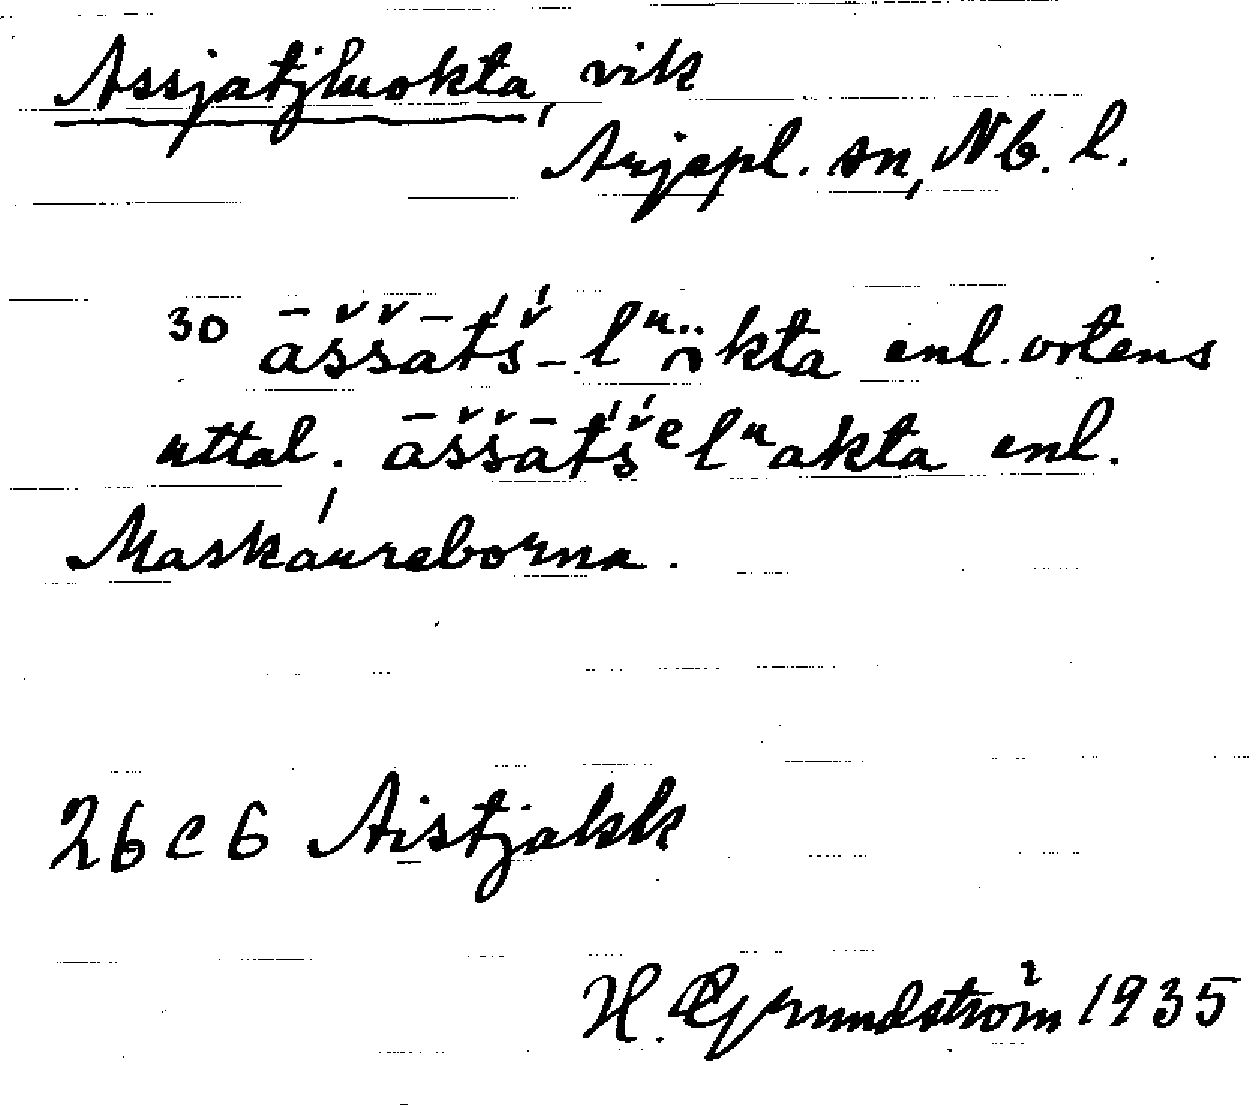 Assjatjluokta, vik
Arjepl. sn, Nb. l.
30 āššāt́š́-lᵘo̤kta enl. ortens
uttal. āššāt́š́ᵉlᵘakta enl.
Maskáureborna.
26 C 6 Aistjakk
H. Grundström 1935